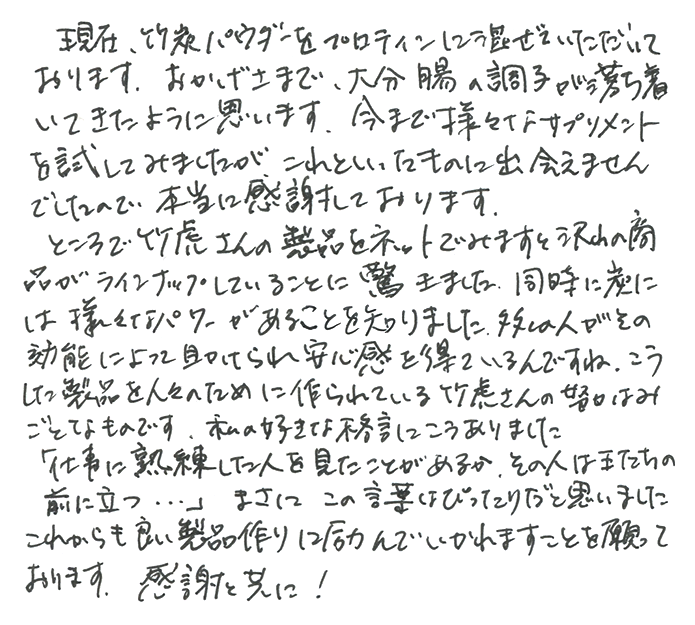 現在、竹炭パウダーをプロテインに混ぜていただいて
おります。おかげさまで、大分腸の調子が落ち着
いてきたように思います。今まで様々なサプリメント
を試してみましたがこれといったものに出会えません
でしたので、本当に感謝しております。
ところで竹虎さんの製品をネットでみますと沢山の商
品がラインナップしていることに驚きました。同時に炭に
は様々なパワーがあることを知りました。多くの人がその
効能によって助けられ安心感を得ているんですね。こう
した製品を人々のために作られている竹虎さんの努力はみ
ごとなものです。私の好きな格言にこうありました
「仕事に熟練した人を見たことがあるか。その人は王たちの
前に立つ…」まさにこの言葉はぴったりだと思いました
これからも良い製品作りに励んでいかれますことを願って
おります。感謝と共に!